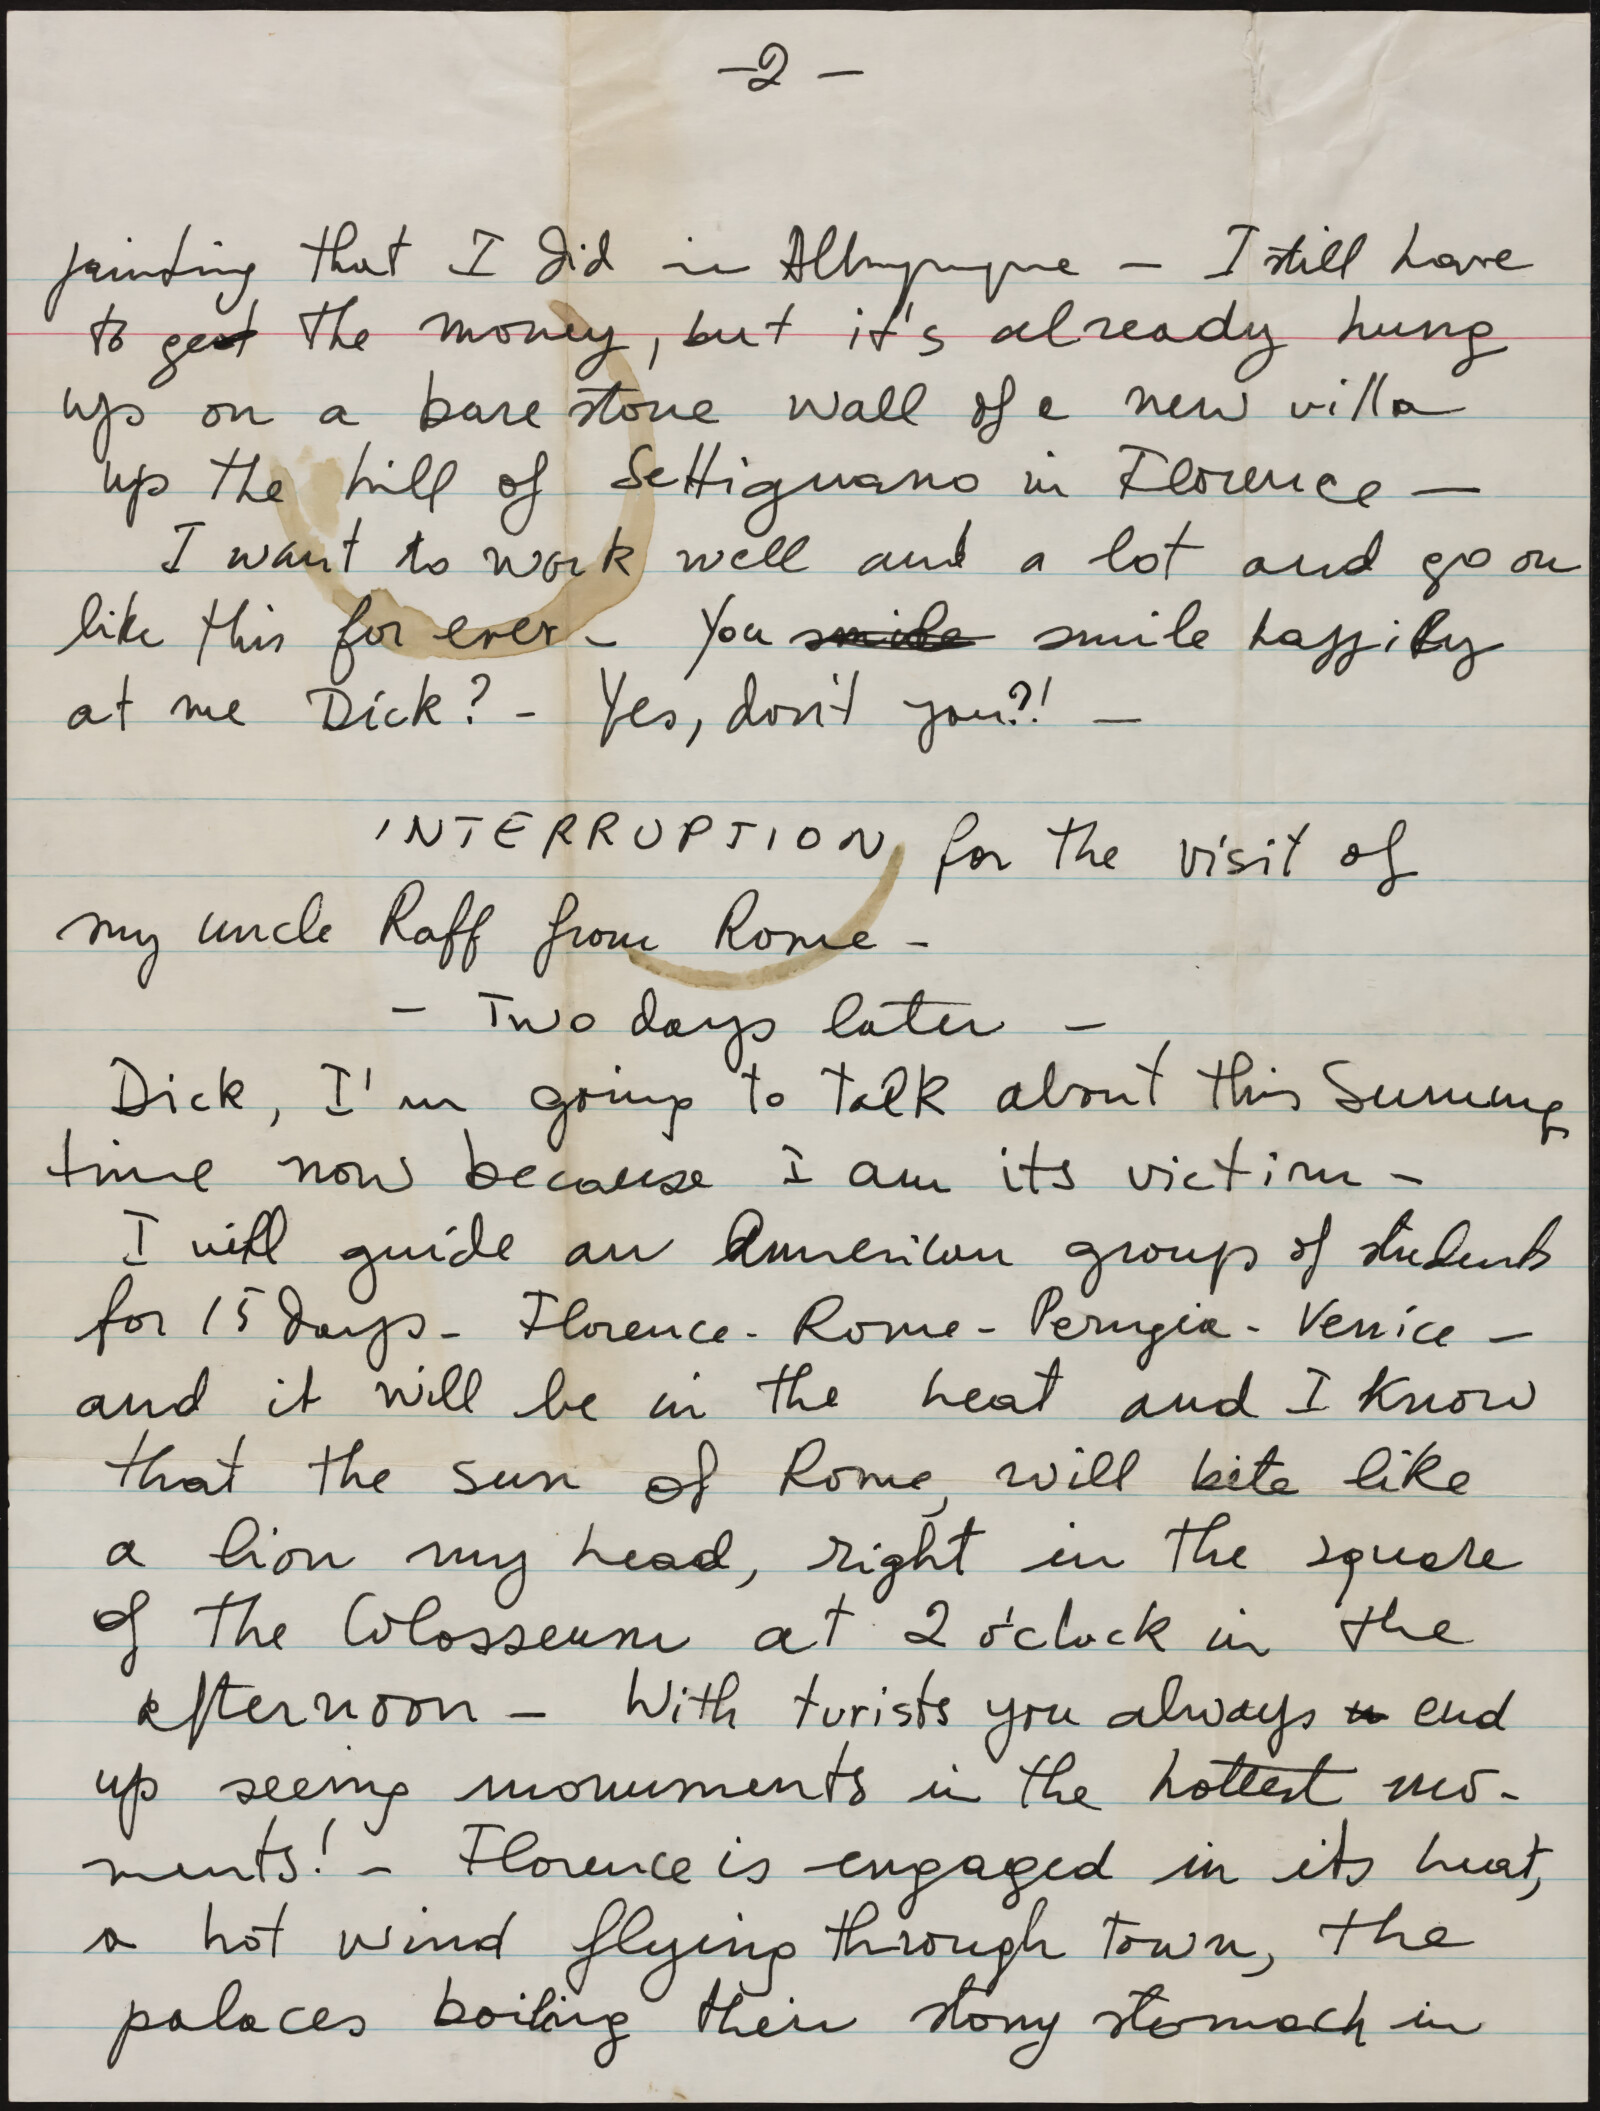 -2-
painting that I did in Albuquque - I still have
to get the money, but it's already hung
up on a bare stone wall of a new villa
up the hill of Settignano in Florence -
I want to work well and a lot and go on
like this for ever - You smile smile happily
at me Dick? - Yes, don't you?! -
INTERRUPTION for the visit of
my uncle Raff from Rome -
- Two days later -
Dick, I'm going to talk about this Summer
time now because I am its victim -
I will guide an American group of students
for 15 days - Florence - Rome - Perugia - Venice -
and it will be in the heat and I know
that the sun of Rome, will bite like
a lion my head, right in the square
of the Colosseum at 2 o'clock in the
afternoon - With turists you always end
up seeing monuments in the hottest mo-
ments! - Florence is engaged in its heat,
a hot wind flying through town, the
palaces boiling their stony stomach in